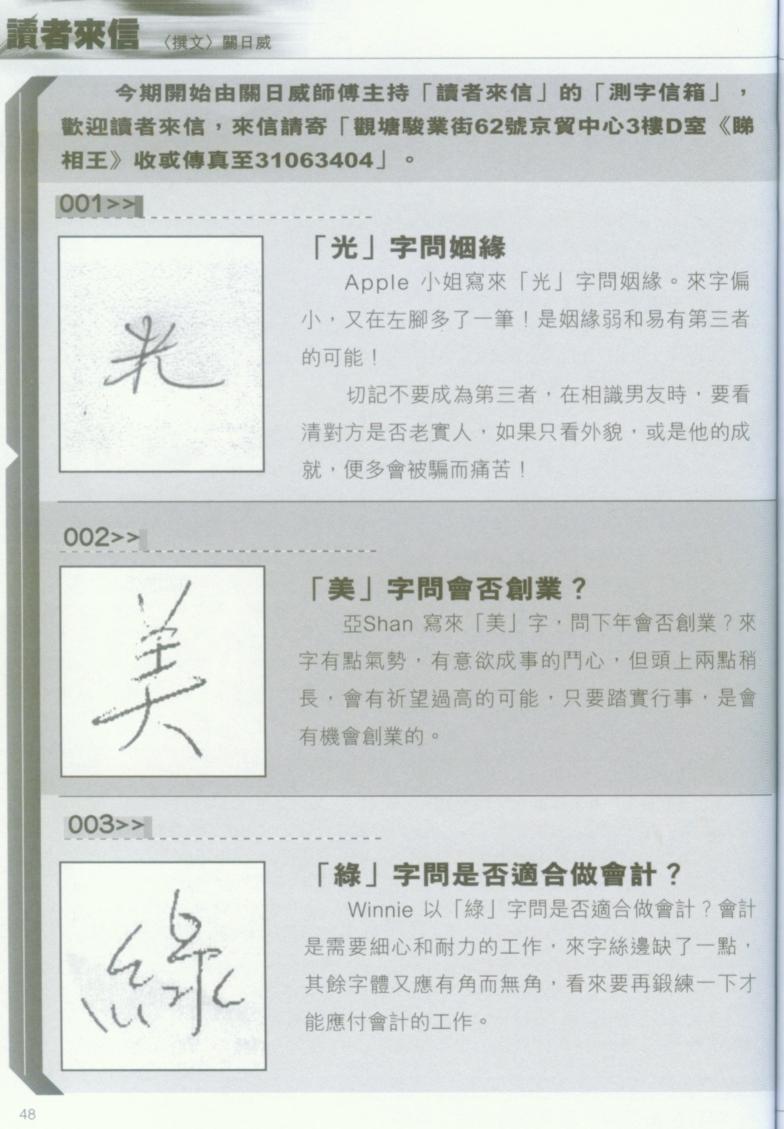 讀者來信 〈撰文〉關日威
今期開始由關日威師傅主持「讀者來信」的「測字信箱」，
歡迎讀者來信，來信請寄「觀塘駿業街62號京貿中心3樓D室《睇
相王》收或傳真至31063404」。
001>>
光
「光」字問姻緣
Apple 小姐寫來「光」字問姻緣。來字偏
小，又在左腳多了一筆！是姻緣弱和易有第三者
的可能！
切記不要成為第三者，在相識男友時，要看
清對方是否老實人，如果只看外貌，或是他的成
就，便多會被騙而痛苦！
002>>
美
「美」字問會否創業？
亞Shan 寫來「美」字，問下年會否創業？來
字有點氣勢，有意欲成事的鬥心，但頭上兩點稍
長，會有祈望過高的可能，只要踏實行事，是會
有機會創業的。
003>>
綠
「綠」字問是否適合做會計？
Winnie 以「綠」字問是否適合做會計？會計
是需要細心和耐力的工作，來字絲邊缺了一點，
其餘字體又應有角而無角，看來要再鍛練一下才
能應付會計的工作。
48